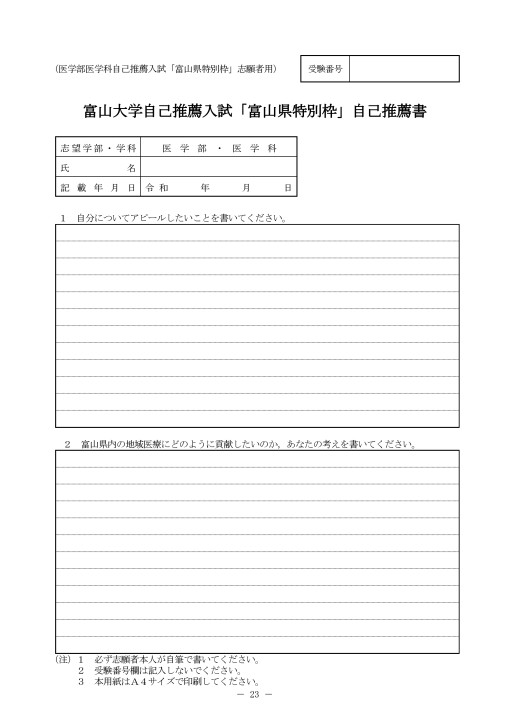 （医学部医学科自己推薦入試「富山県特別枠」志願者用）
受験番号
富山大学自己推薦入試「富山県特別枠」自己推薦書
志望学部・学科　医　学　部　・　医　学　科
氏　名
記　載　年　月　日　令和　年　月　日
１　自分についてアピールしたいことを書いてください。
２　富山県内の地域医療にどのように貢献したいのか，あなたの考えを書いてください。
（注）１　必ず志願者本人が自筆で書いてください。
２　受験番号欄は記入しないでください。
３　本用紙はＡ４サイズで印刷してください。
－ 23 －